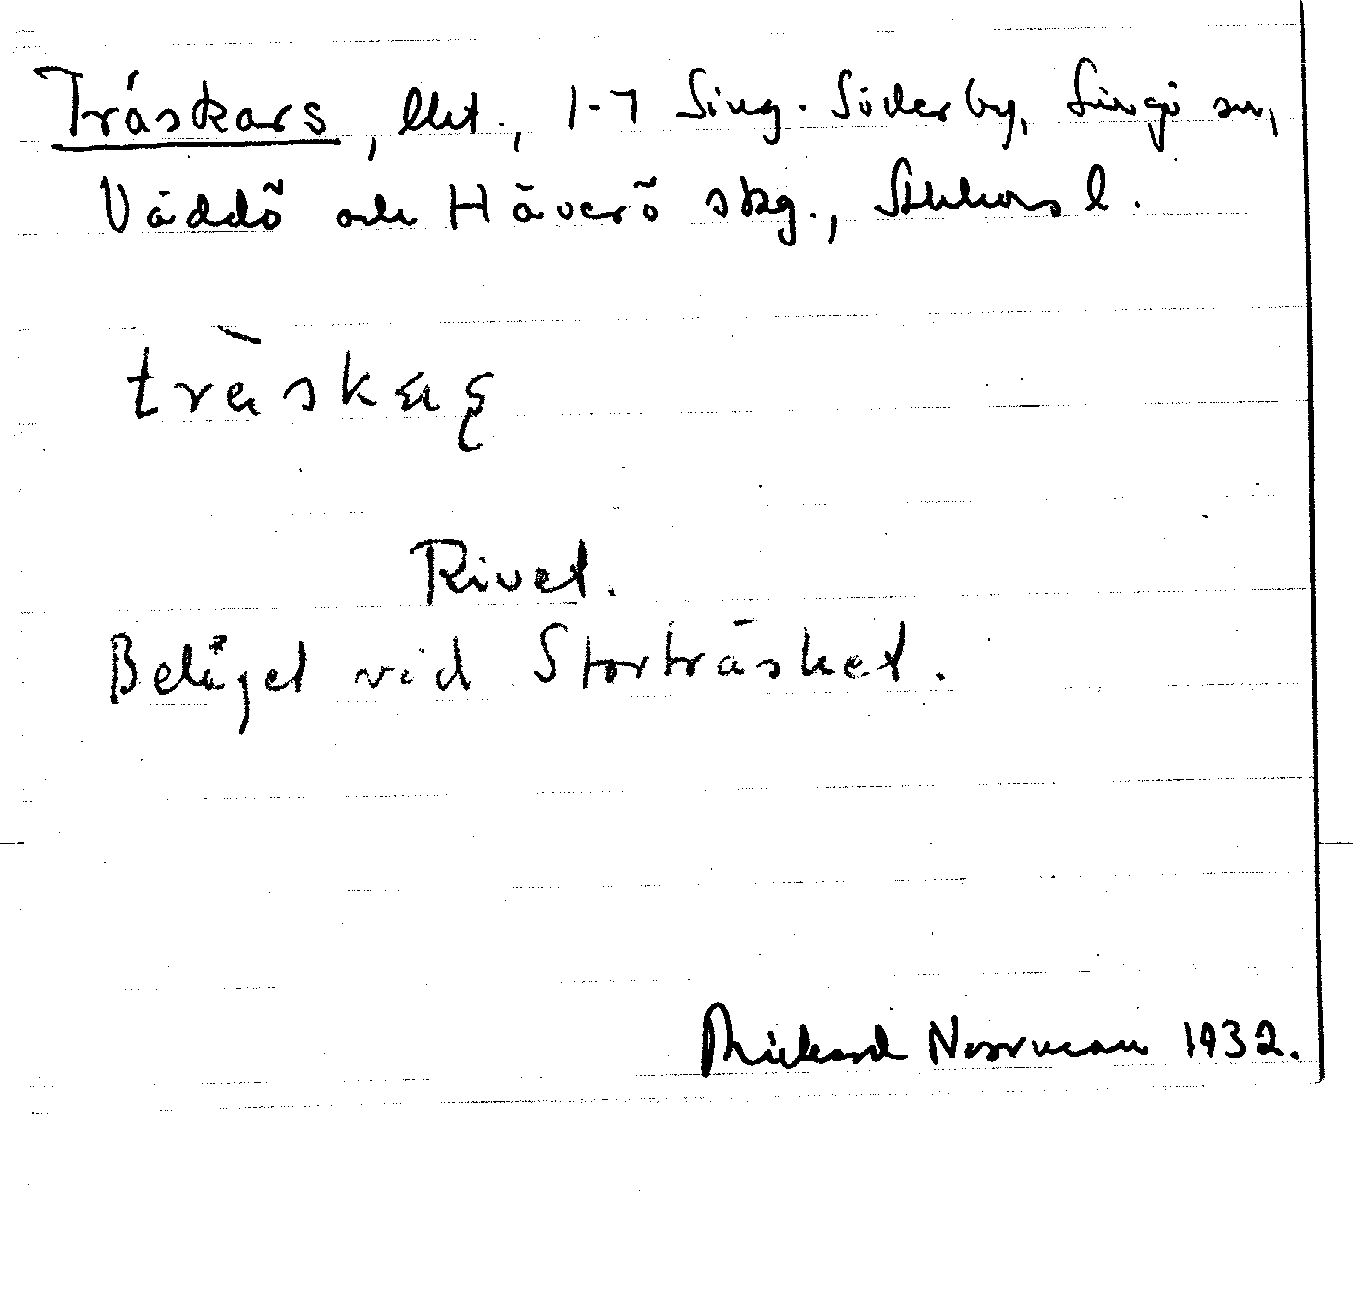 Träskars, lht., 1-7 Sing-Söderby, Singö sn,
Väddö och Häverö skg., Sthlms l.
träskaʂ
Rivet.
Beläget vid Storträsket.
Rickard Norrman 1932.